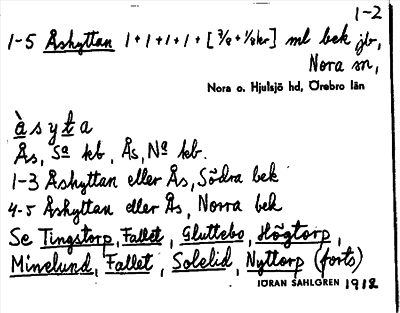 1-2
1-5 Åshyttan 1+1+1+1+[3/8+1/8kr] ml bek jb,
Nora sn,
Nora o. Hjulsjö hd, Örebro län
àsyta
Ås, Sª kb, Ås, Nª kb.
1-3 Åshyttan eller Ås, Södra bek
4-5 Åshyttan eller Ås, Norra bek
Se Tingstorp, Fallet, Gluttebo, Högtorp,
Minelund, Fallet, Solelid, Nyttorp (forts)
JÖRAN SAHLGREN 1912